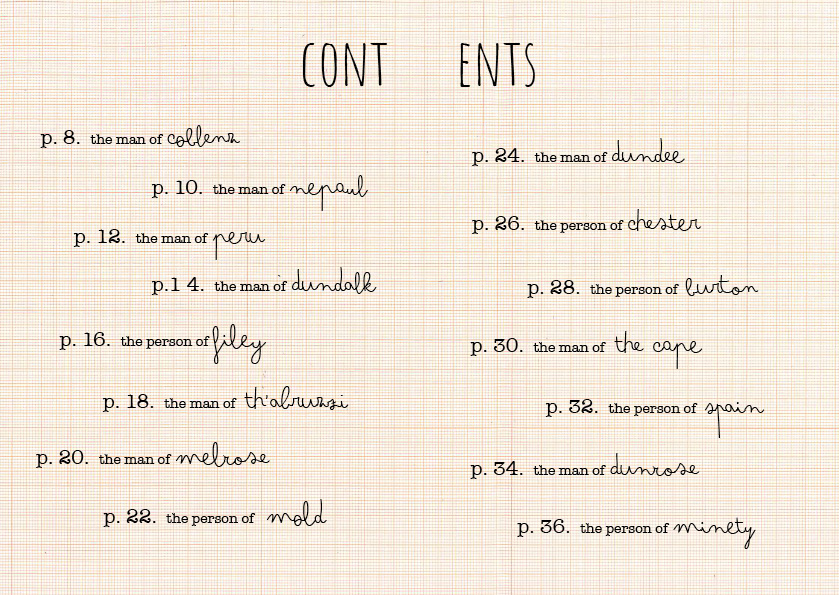 CONTENTS
p. 8. the man of coblenz
p. 10. the man of nepaul
p. 12. the man of peru
p.1 4. the man of dundalk
p. 16. the person of filey
p. 18. the man of th'abruzzi
p. 20. the man of melrose
p. 22. the person of mold
p. 24. the man of dundee
p. 26. the person of chester
p. 28. the person of burton
p. 30. the man of the cape
p. 32. the person of spain
p. 34. the man of dunrose
p. 36. the person of minety